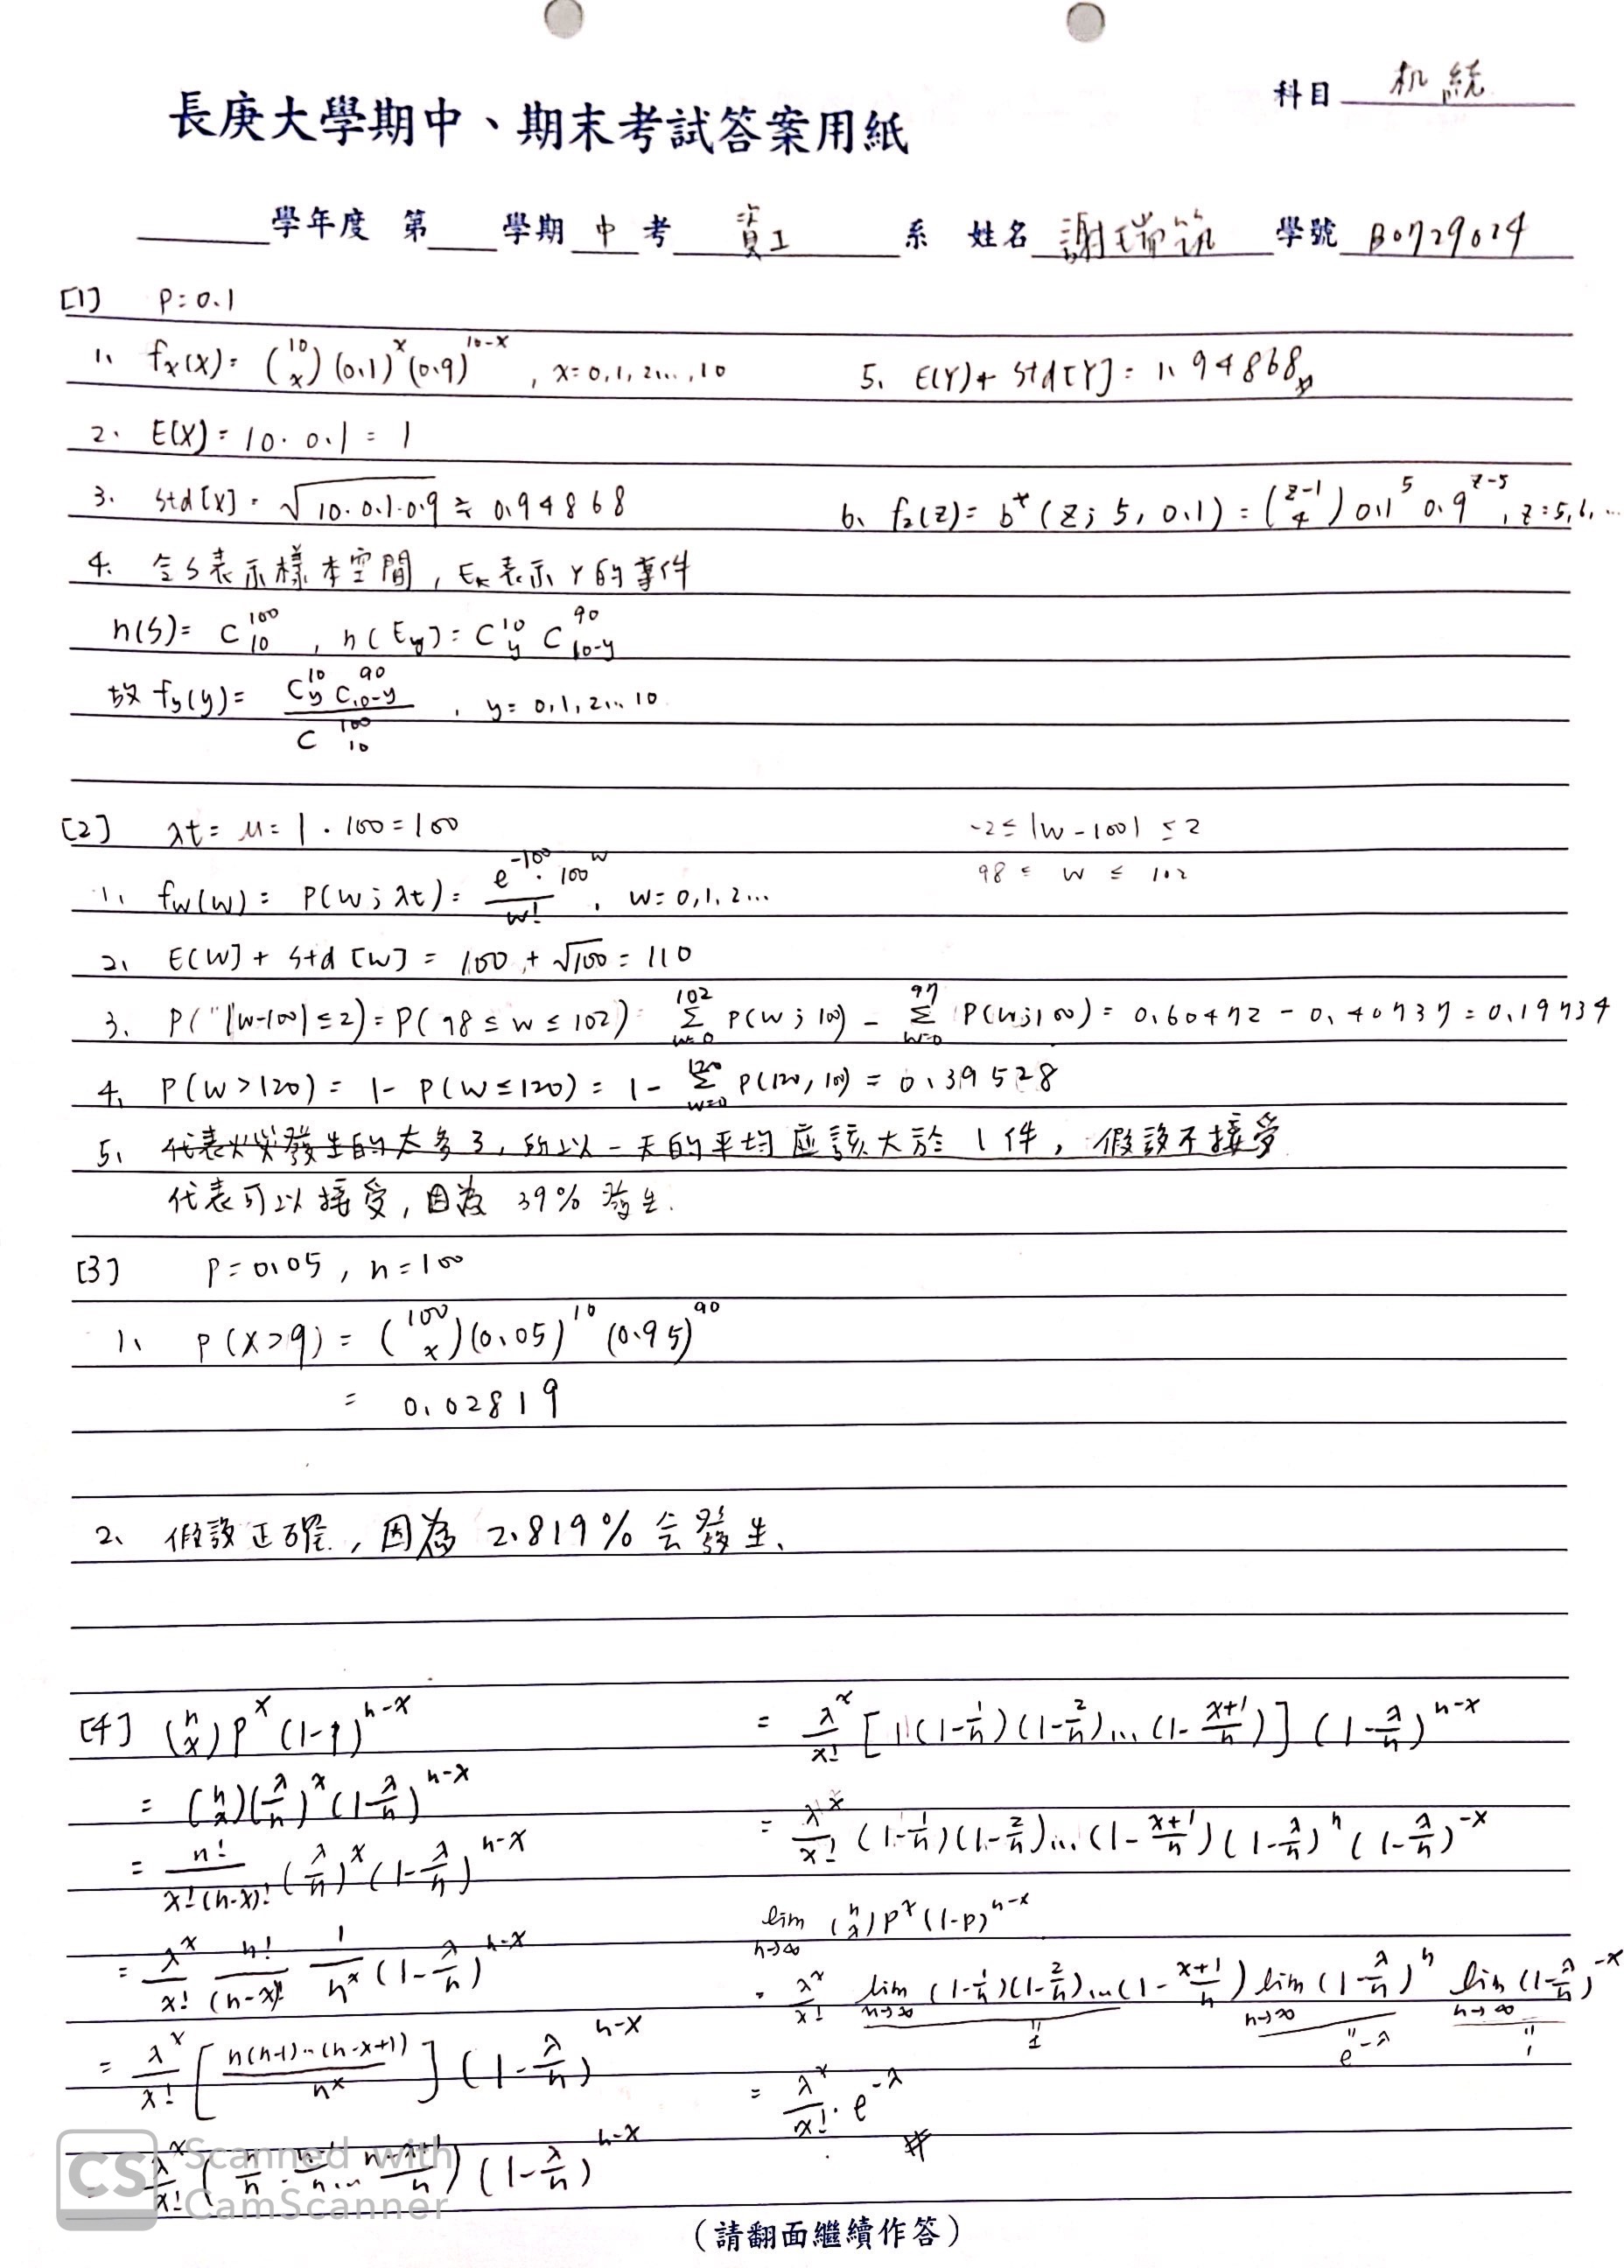 科目 机統
長庚大學期中、期末考試答案用紙
學年度 第 學期 中 考 資工 系 姓名 謝瑞筑 學號 B0729024
[1] P=0.1
1. fx(x)= (10 x)(0.1)^x (0.9)^10-x , x=0,1,2...,10
5. E(Y)+ Std[Y] = 1.94868
2. E[X]= 10·0.1 = 1
3. Std[X] = √10·0.1·0.9 ≒ 0.94868
6. fz(z)= b*(z; 5, 0.1) = (z-1 4) 0.1^5 0.9^z-5 , z=5,6,...
4. 令S表示樣本空間, Ek表示Y的事件
n(S)= C^100_10 , n(Ey)= C^10_y C^90_10-y
故 fy(y)= C^10_y C^90_10-y / C^100_10 , y= 0,1,2...10
[2] λt= μ= 1·100=100
-2≤|W-100|≤2
98 ≤ W ≤ 102
1. fw(w)= P(w; λt)= e^-100·100^w / w! , w=0,1,2...
2. E[W]+ Std[W] = 100 + √100 = 110
3. P(|W-100|≤2)=P(98≤W≤102) = Σ^102_w=0 P(w;100) - Σ^97_w=0 P(w;100) = 0.60472 - 0.40737 = 0.19734
4. P(W>120)= 1- P(W≤120)= 1- Σ^120_w=0 P(120,100) = 0.39528
5. 代表火災發生的太多了,所以一天的平均應該大於1件, 假設不接受
代表可以接受,因為 39% 發生.
[3] P=0.05, n=100
1. P(X>9) = (100 x)(0.05)^10 (0.95)^90
= 0.02819
2. 假設正確, 因為 2.819% 会發生.
[4] (n x) P^x (1-P)^n-x
= (n x)(λ/n)^x (1-λ/n)^n-x
= n!/x!(n-x)! (λ/n)^x (1-λ/n)^n-x
= λ^x/x! n!/(n-x)! 1/n^x (1-λ/n)^n-x
= λ^x/x! [n(n-1)...(n-x+1)/n^x] (1-λ/n)^n-x
λ^x/x! (n/n · ... n-x+1/n) (1-λ/n)^n-x
= λ^x/x! [1(1-1/n)(1-2/n)...(1-x+1/n)] (1-λ/n)^n-x
= λ^x/x! (1-1/n)(1-2/n)...(1-x+1/n)(1-λ/n)^n (1-λ/n)^-x
lim n→∞ (n x)P^x(1-P)^n-x
= λ^x/x! lim n→∞ (1-1/n)(1-2/n)...(1-x+1/n) lim n→∞ (1-λ/n)^n lim n→∞ (1-λ/n)^-x
" 1 " e^-λ " 1
= λ^x/x! · e^-λ #
CS Scanned with
CamScanner
(請翻面繼續作答)